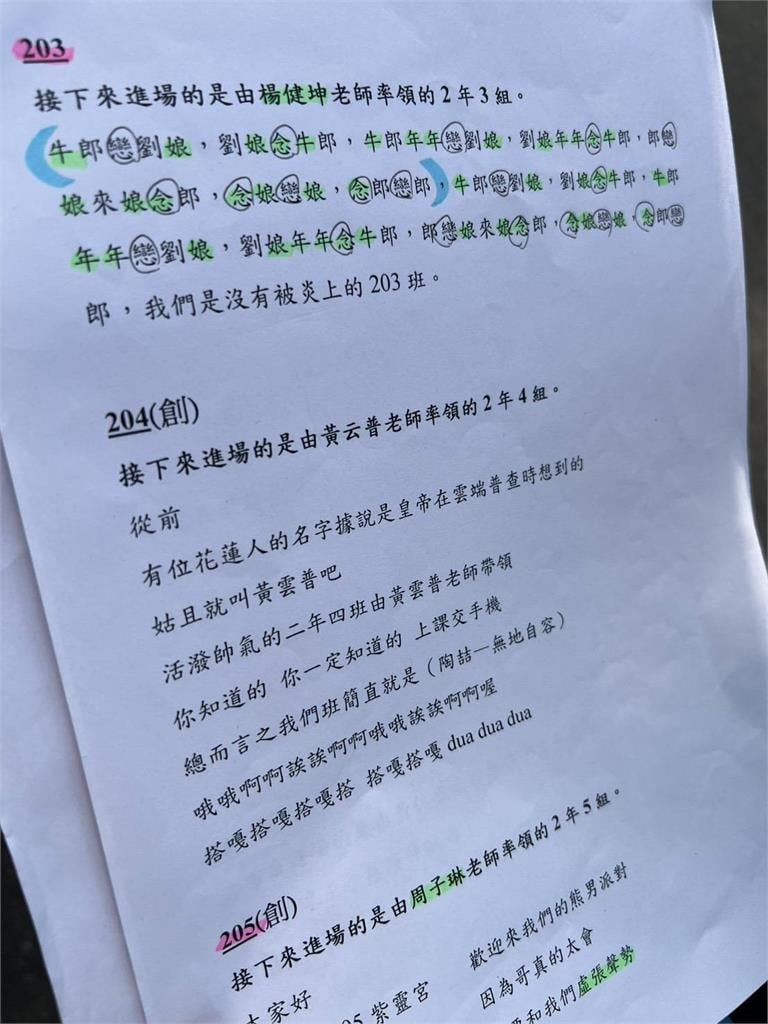 203
接下來進場的是由楊健坤老師率領的2年3組。
牛郎戀劉娘，劉娘念牛郎，牛郎年年戀劉娘，劉娘年年念牛郎，郎戀
娘來娘念郎，念娘戀娘，念郎戀郎，牛郎戀劉娘，劉娘念牛郎，牛郎
年年戀劉娘，劉娘年年念牛郎，郎戀娘來娘念郎，念娘戀娘，念郎戀
郎，我們是沒有被炎上的203班。
204(創)
接下來進場的是由黃云普老師率領的2年4組。
從前
有位花蓮人的名字據說是皇帝在雲端普查時想到的
姑且就叫黃雲普吧
活潑帥氣的二年四班由黃雲普老師帶領
你知道的 你一定知道的 上課交手機
總而言之我們班簡直就是（陶喆—無地自容）
哦哦啊啊誒誒啊啊哦哦誒誒啊啊喔
搭嘎搭嘎搭嘎搭 搭嘎搭嘎 dua dua dua
205(創)
接下來進場的是由周子琳老師率領的2年5組。
大家好 歡迎來我們的熊男派對
紫靈宮 因為哥真的太會
和我們虛張聲勢